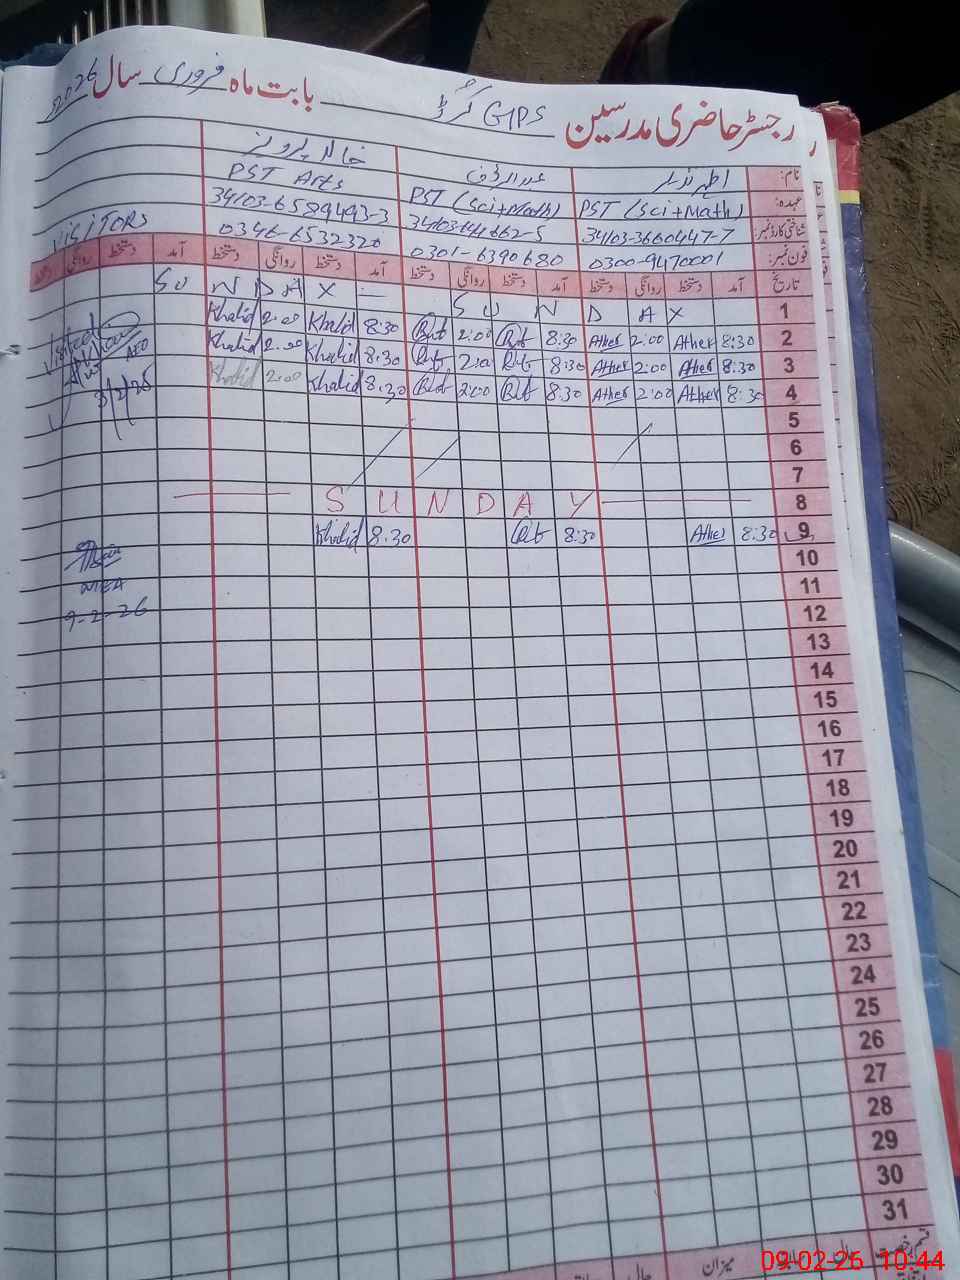 رجسٹر حاضری مدرسین GPS کُرڑ بابت ماہ فروری سال 2026
نام: اطہر نذیر عبدالرؤف خالد پرویز
عہدہ: PST (Sci+Math) PST (Sci+Math) PST Arts
شناختی کارڈ نمبر: 34103-3660447-7 34103-6589493-3
فون نمبر: 0300-9470001 0301-6390680 0346-6532320 VISITORS
تاریخ آمد دستخط روانگی دستخط آمد دستخط روانگی دستخط آمد دستخط روانگی دستخط آمد دستخط روانگی دستخط
1 SUNDAY SUNDAY
2 8:30 Ather 2:00 Ather 8:30 2:00 8:30 Khalid 2:00 Khalid
3 8:30 Ather 2:00 Ather 8:30 2:00 8:30 Khalid 2:00 Khalid
4 8:30 Ather 2:00 Ather 8:30 2:00 8:30 Khalid 2:00 Khalid
Visited
AEO
3/2/26
5
6
7
8 SUNDAY
9 8:30 Ather 8:30 8:30 Khalid
10
MEA
11
9-2-26
12
13
14
15
16
17
18
19
20
21
22
23
24
25
26
27
28
29
30
31
قسم رخصت حالیہ سابقہ میزان
09-02-26 10:44